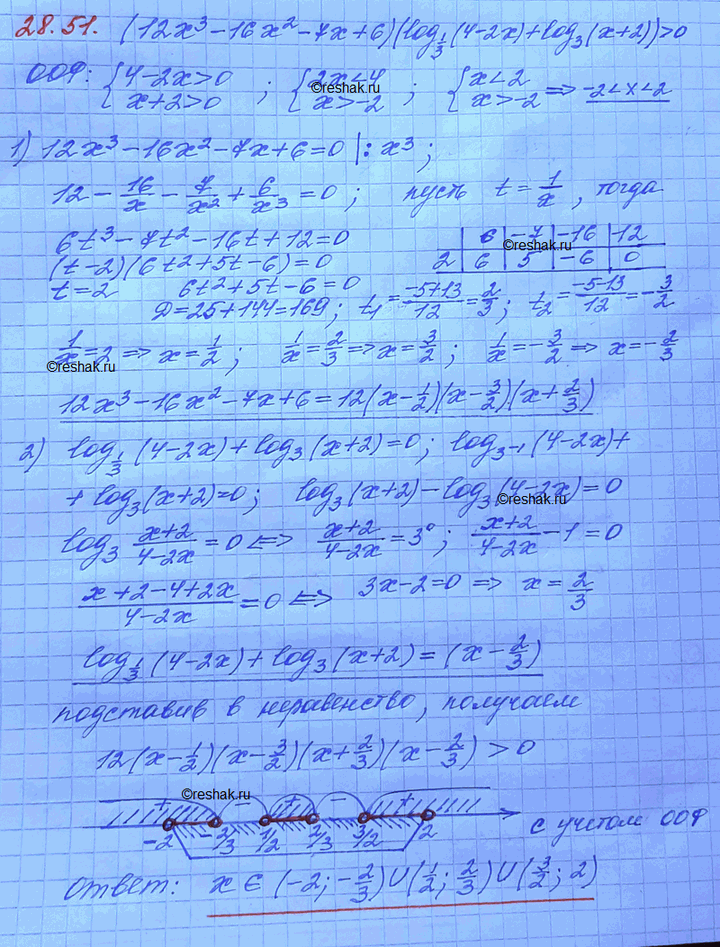 28.51. (12x³-16x²-7x+6)(log_{1/3}(4-2x)+log₃(x+2))>0
ООФ: {4-2x>0 x+2>0 ; {2x<4 x>-2 ; {x<2 x>-2 ⟹ -2<x<2
reshak.ru
1) 12x³-16x²-7x+6=0 |: x³ ;
12 - 16/x - 7/x² + 6/x³ = 0 ; пусть t = 1/x , тогда
6t³-7t²-16t+12=0 | 6 | -7 | -16 | 12
reshak.ru
(t-2)(6t²+5t-6)=0 2 | 6 | 5 | -6 | 0
t=2 6t²+5t-6=0
D=25+144=169; t₁ = (-5+13)/12 = 2/3 ; t₂ = (-5-13)/12 = -3/2
1/x = 2 ⟹ x = 1/2 ; 1/x = 2/3 ⟹ x = 3/2 ; 1/x = -3/2 ⟹ x = -2/3
reshak.ru
12x³-16x²-7x+6=12(x-1/2)(x-3/2)(x+2/3)
2) log_{1/3}(4-2x)+log₃(x+2)=0; log_{3⁻¹}(4-2x)+
+log₃(x+2)=0; log₃(x+2)-log₃(4-2x)=0
reshak.ru
log₃ (x+2)/(4-2x) = 0 ⟺ (x+2)/(4-2x) = 3⁰ ; (x+2)/(4-2x) - 1 = 0
(x+2-4+2x)/(4-2x) = 0 ⟺ 3x-2=0 ⟹ x = 2/3
log_{1/3}(4-2x)+log₃(x+2)=(x-2/3)
подставив в неравенство, получаем
12(x-1/2)(x-3/2)(x+2/3)(x-2/3)>0
reshak.ru
+ - + - +
-2 -2/3 1/2 2/3 3/2 2 с учетом ООФ
Ответ: x ∈ (-2; -2/3)∪(1/2; 2/3)∪(3/2; 2)